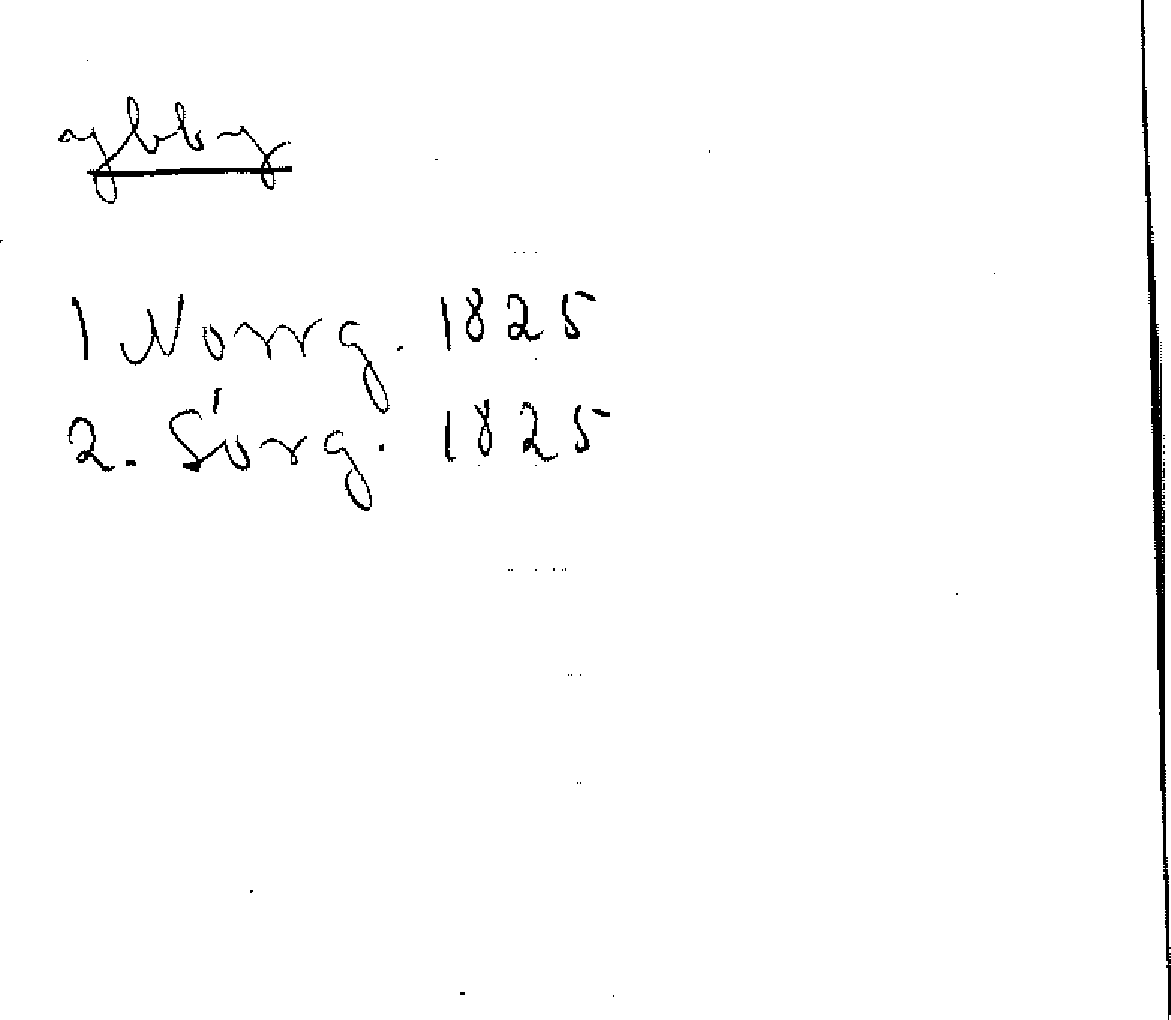 1 Norrg. 1825
2. Sörg. 1825